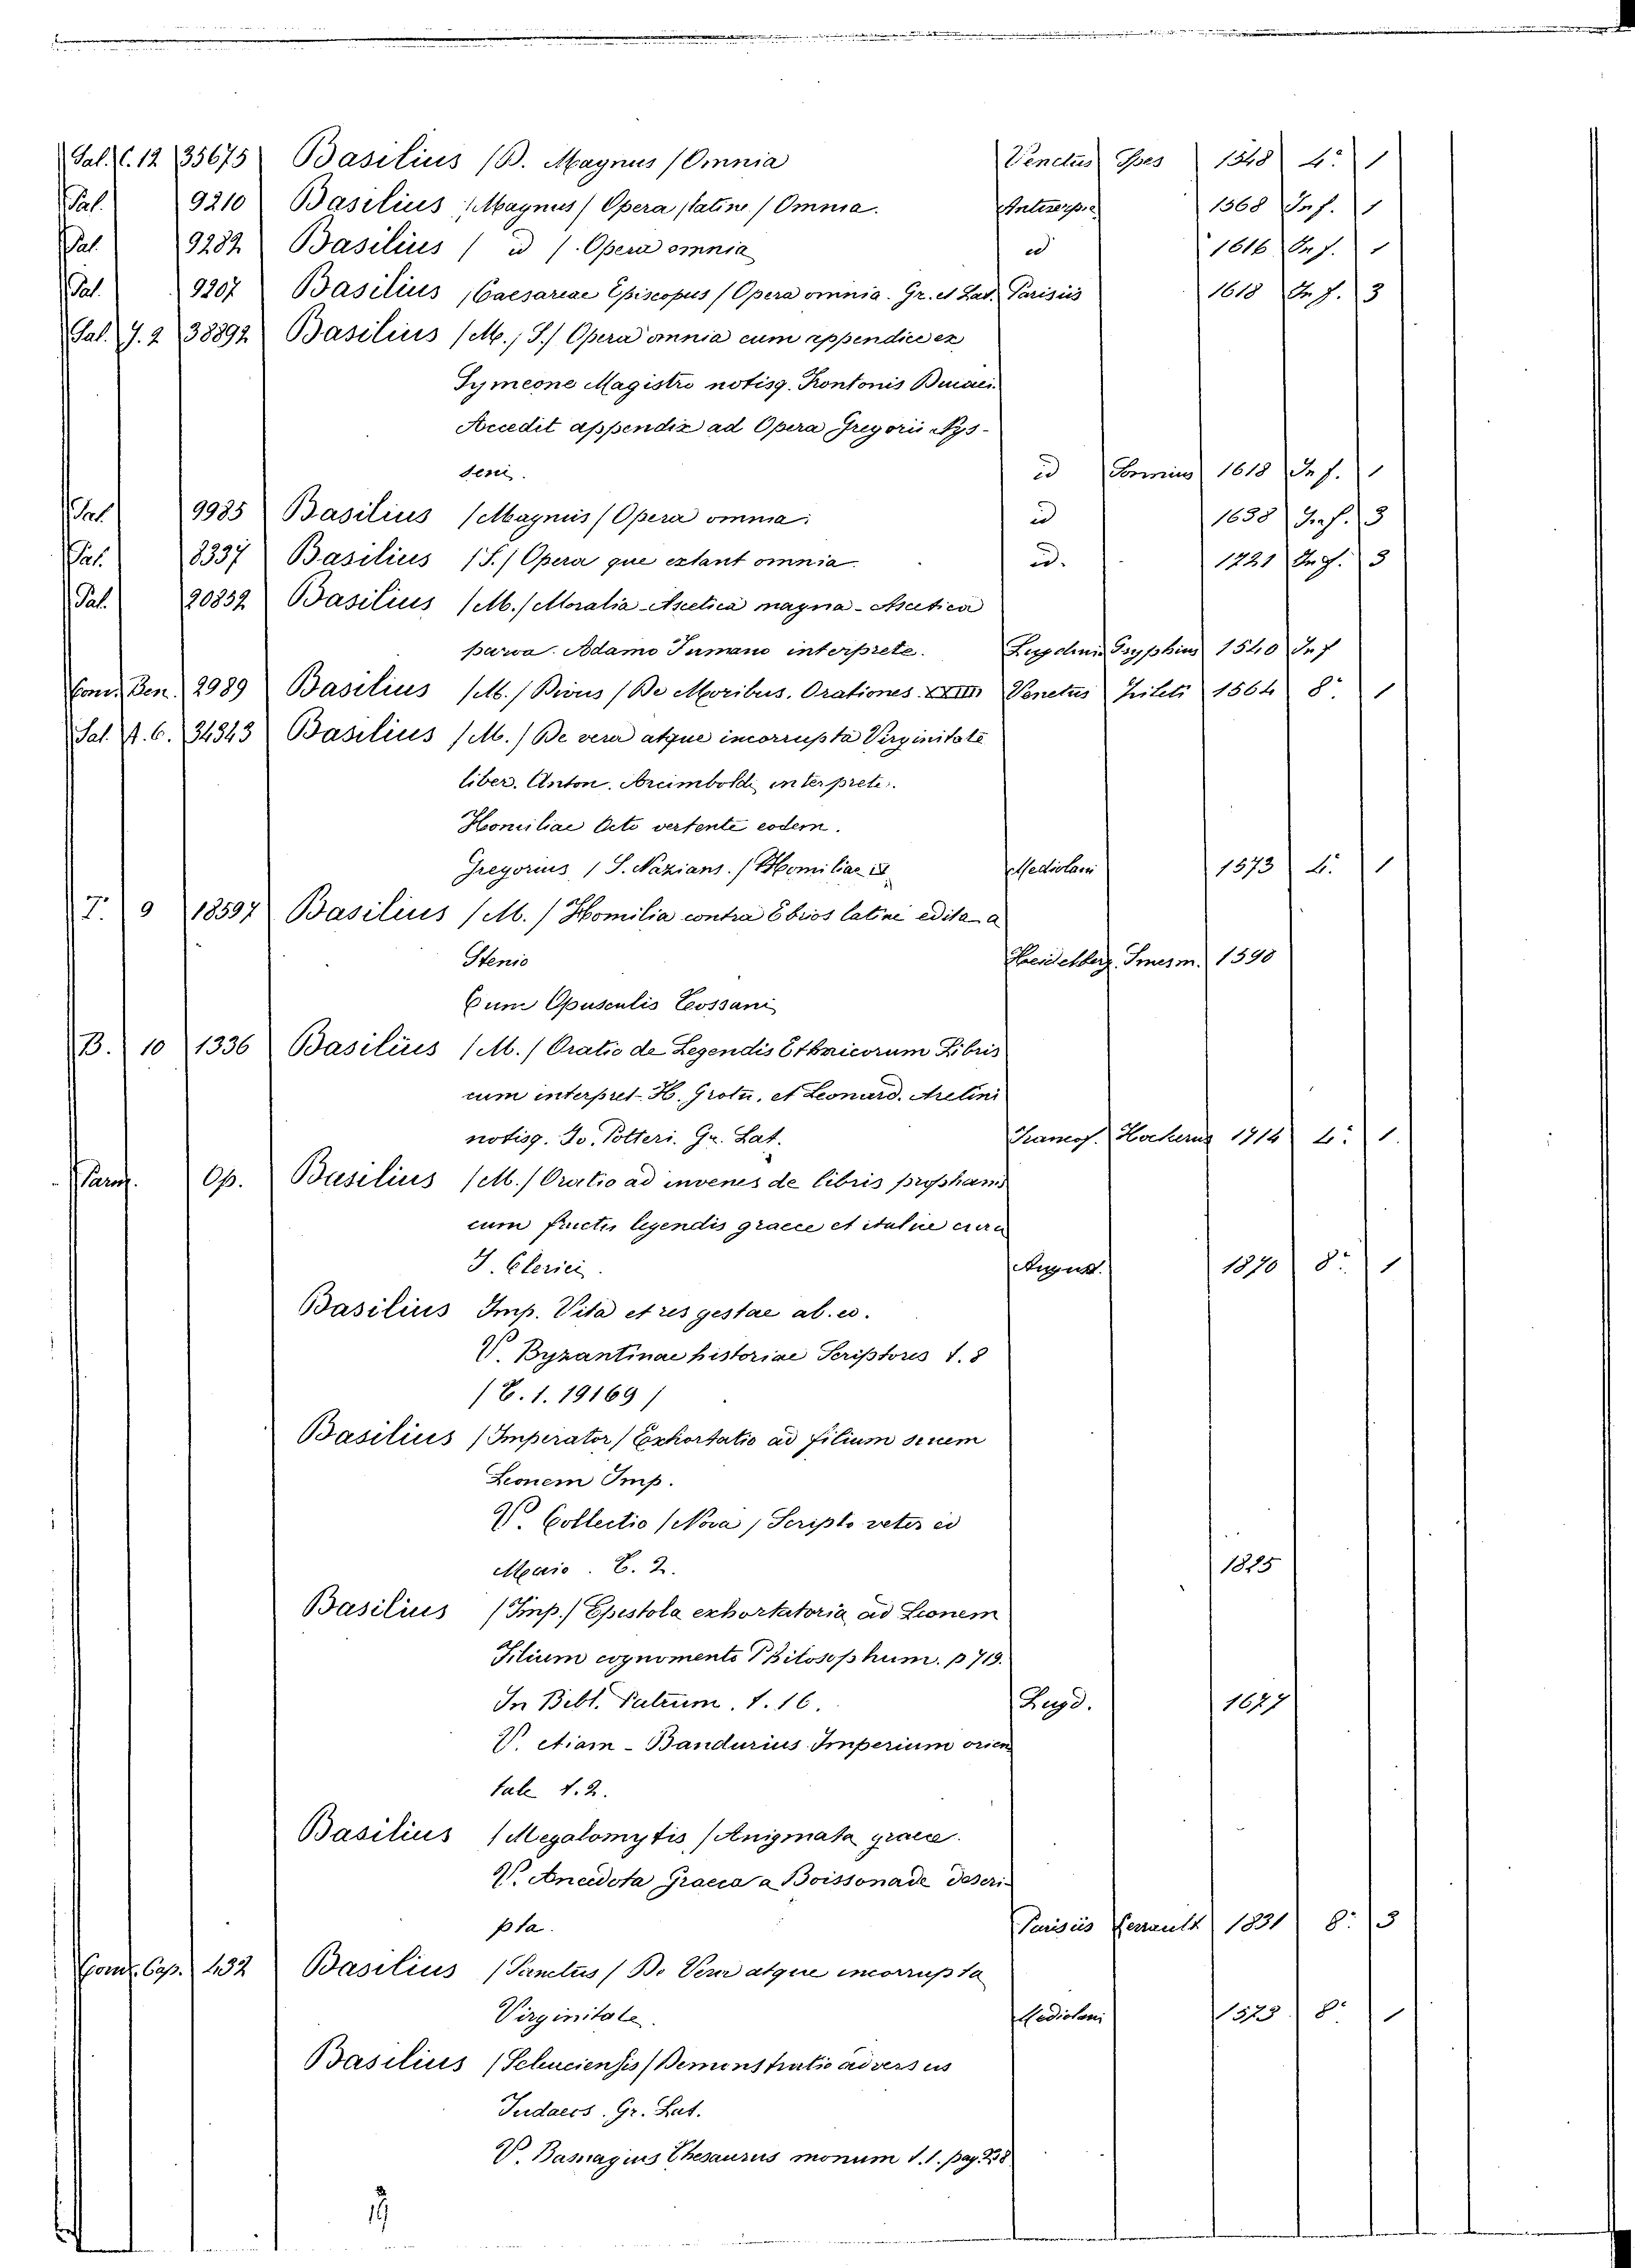 Sal. C. 12 35675 Basilius (B. Magnus) Omnia Venetus Spes 1548 4º 1
Pal. 9210 Basilius (Magnus) Opera (latine) Omnia. Antuerp. 1568 In f. 1
Pal. 9282 Basilius ( id ). Opera omnia id 1616 In f. 1
Pal. 9207 Basilius (Caesareae Episcopus) Opera omnia. Gr. et Lat. Parisiis 1618 In f. 3
Sal. J. 2 38892 Basilius (M., S.) Opera omnia cum appendice ex
Symeone Magistro notisq. Frontonis Ducaei.
Accedit appendix ad Opera Gregorii Nys-
seni. id Sonnius 1618 In f. 1
Pal. 9985 Basilius (Magnus) Opera omnia. id 1638 In f. 3
Pal. 8337 Basilius (S.) Opera que extant omnia. id. 1721 In f. 3
Pal. 20852 Basilius (M.) Moralia-Ascetica magna-Ascetica
parva. Adamo Fumano interprete. Lugduni Gryphius 1540 In f
Conv. Ben. 2989 Basilius (M.) Divus (De Moribus. Orationes XXIIII Venetus Zileti 1564 8º 1
Sal. A. 6. 34543 Basilius (M.) De vera atque incorrupta Virginitate
liber. Anton. Arcimboldi interprete.
Homiliae Octo vertente eodem.
Gregorius (S. Nazians.) Homiliae Mediolani 1573 4º 1
T. 9 18597 Basilius (M.) Homilia contra Ebrios latine edita a
Stenio Heidelberg. Smesm. 1598
Cum Opusculis Cossani
B. 10 1336 Basilius (M.) Oratio de Legendis Ethnicorum Libris
cum interpret. H. Grotii, et Leonard. Aretini
notisq. Jo. Potteri. Gr. Lat. Francof. Hockerus 1714 4º 1.
Parm. Op. Basilius (M.) Oratio ad invenes de libris prophanis
cum fructu legendis graece et italice cura
J. Clerici. August. 1870 8º 1
Basilius Imp. Vita et res gestae ab. eo.
V. Byzantinae historiae Scriptores t. 8
(C. 1. 19169)
Basilius (Imperator) Exhortatio ad filium suum
Leonem Imp.
V. Collectio (Nova) Scripto veter ed
Maio. C. 2. 1825
Basilius (Imp.) Epistola exhortatoria ad Leonem
Filium cognomento Philosophum. p 719.
In Bibl. Patrum. t. 16. Lugd. 1677
V. etiam - Bandurius Imperium orien
tale t. 2.
Basilius (Megalomytis) Anigmata graece.
V. Anecdota Graeca a Boissonade descri-
pta. Parisiis Perrault 1831 8º 3
Conv. Cap. 432 Basilius (Sanctus) De Vera atque incorrupta
Virginitate. Mediolani 1573 8º 1
Basilius (Seleuciensis) Demonstratio adversus
Judaeos. Gr. Lat.
V. Basnagius Thesaurus monum t. 1. pag. 238
19